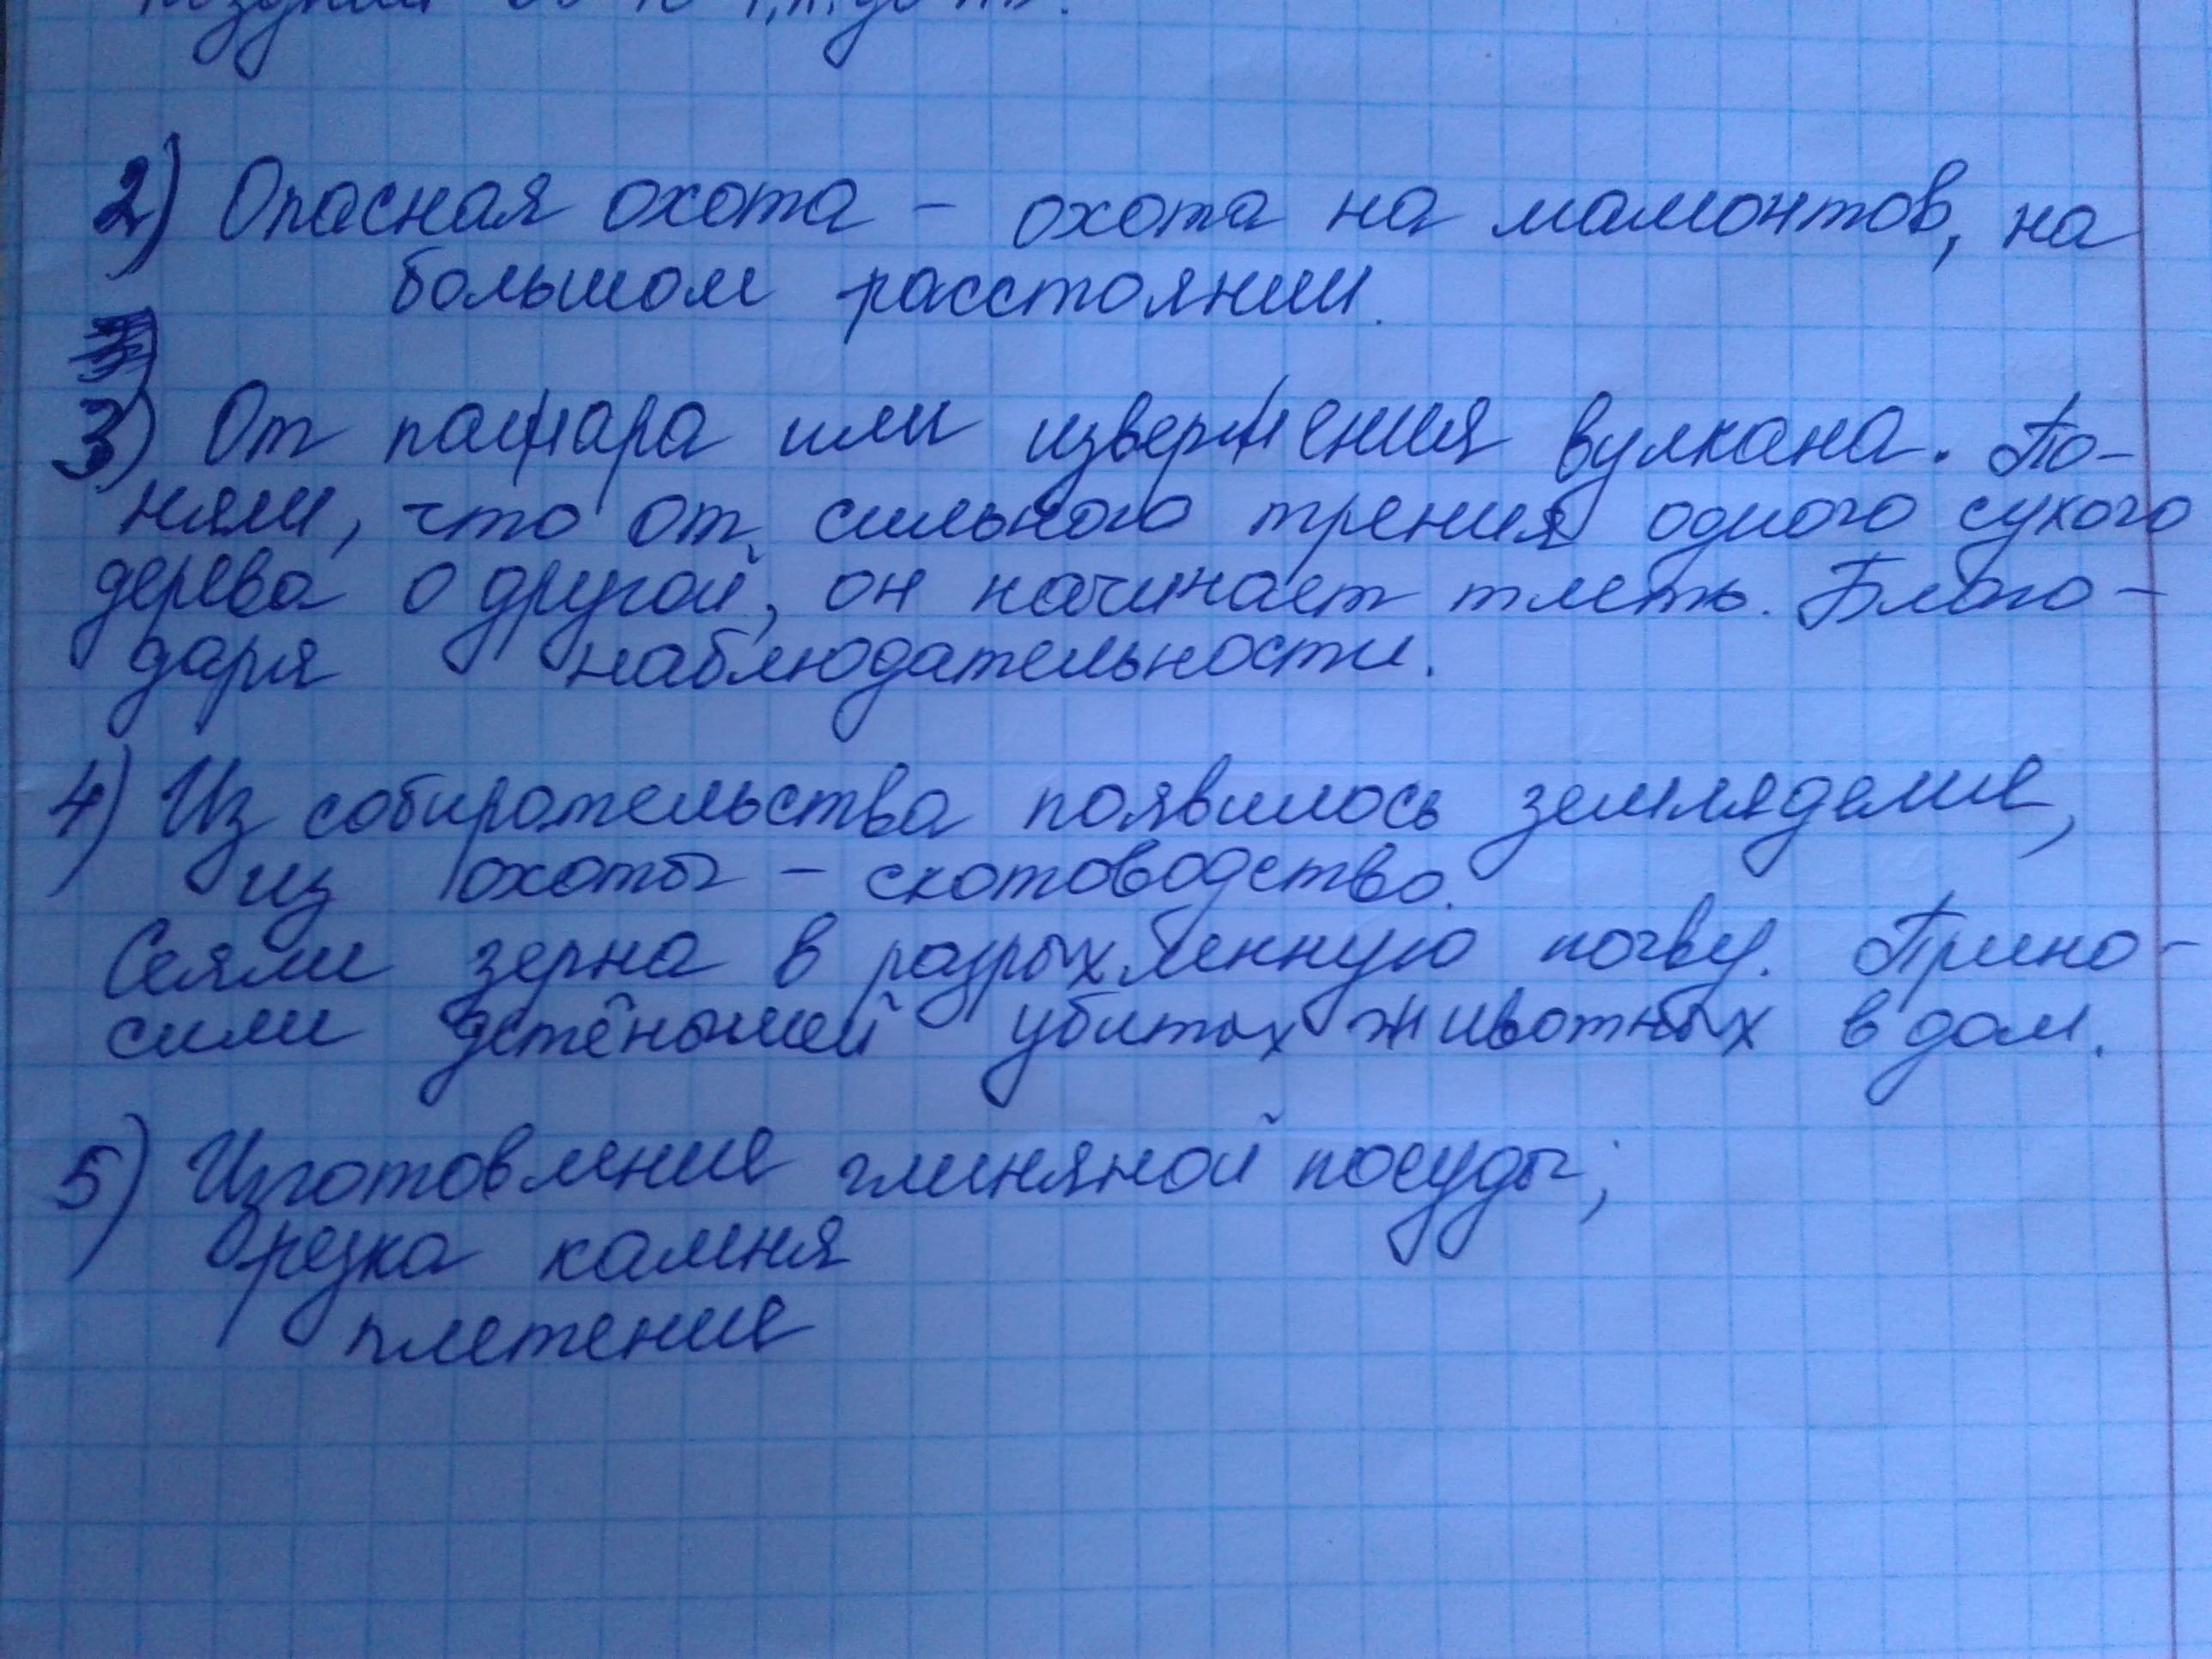 2) Опасная охота – охота на мамонтов, на
большом расстоянии.
3) От пажара или извержения вулкана. По-
няли, что от сильного трения одного сухого
дерева о другой, он начинает тлеть. Благо-
даря наблюдательности.
4) Из собирательства появилось земляделие,
из охоты – скотоводство.
Сеяли зерна в разрыхленную почву. Прино-
сили детёнышей убитых животных в дом.
5) Изготовление глиняной посуды;
резка камня
плетение